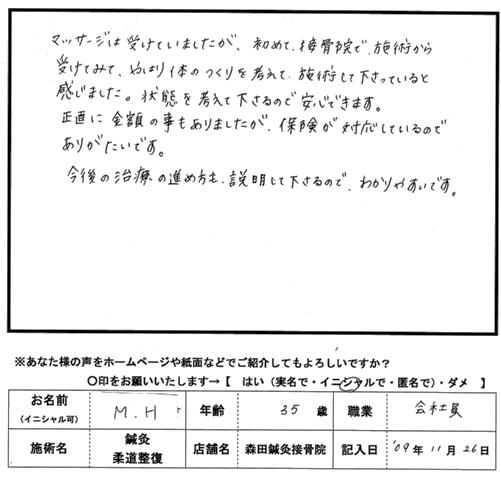 マッサージは受けていましたが、初めて、接骨院で、施術から
受けてみて、やはり体のつくりを考えて、施術して下さっていると
感じました。状態を考えて下さるので安心できます。
正直に金額の事もありましたが、保険が対応しているので
ありがたいです。
今後の治療の進め方も、説明して下さるので、わかりやすいです。
※あなた様の声をホームページや紙面などでご紹介してもよろしいですか？
〇印をお願いいたします→【 はい（実名で・イニシャルで・匿名で）・ダメ 】
お名前（イニシャル可） M.H 年齢 35 歳 職業 会社員
施術名 鍼灸 柔道整復 店舗名 森田鍼灸接骨院 記入日 '09年 11月 26日